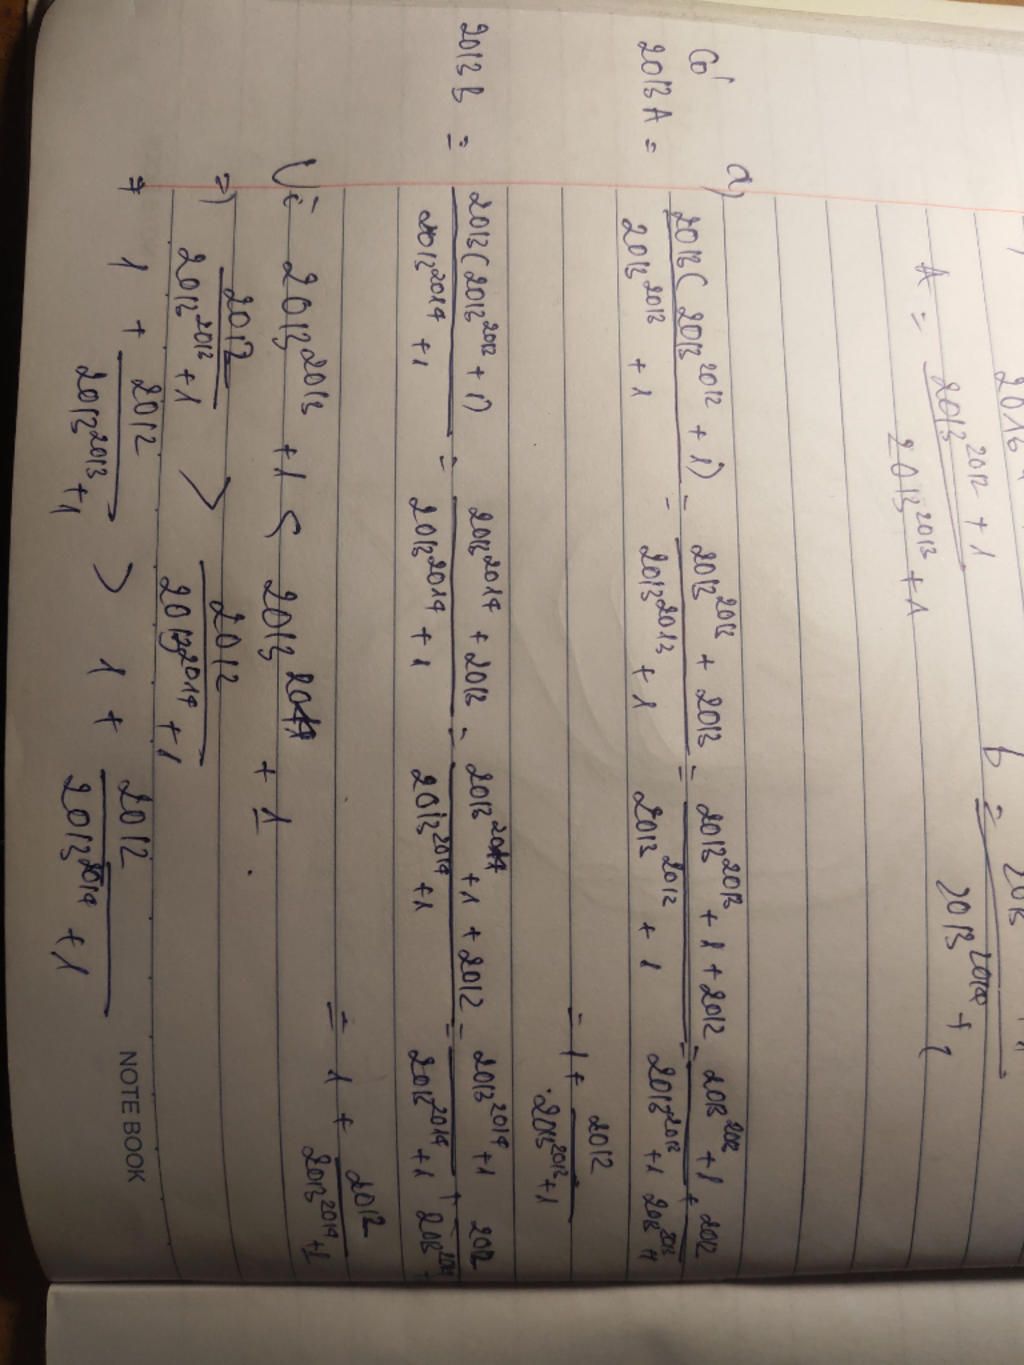 A = 2013^2012 + 1 / 2013^2013 + 1
2013^2014 + 1
a)
Có
2013 A = 2013(2013^2012 + 1) / 2013^2013 + 1 = 2013^2013 + 2013 / 2013^2013 + 1 = 2013^2013 + 1 + 2012 / 2013^2013 + 1 = 2013^2013 + 1 / 2013^2013 + 1 + 2012 / 2013^2013 + 1
= 1 + 2012 / 2013^2013 + 1
2013 B = 2013(2013^2013 + 1) / 2013^2014 + 1 = 2013^2014 + 2013 / 2013^2014 + 1 = 2013^2014 + 1 + 2012 / 2013^2014 + 1 = 2013^2014 + 1 / 2013^2014 + 1 + 2012
= 1 + 2012 / 2013^2014 + 1
Vì 2013^2013 + 1 < 2013^2014 + 1
=) 2012 / 2013^2013 + 1 > 2012 / 2013^2014 + 1
=> 1 + 2012 / 2013^2013 + 1 > 1 + 2012 / 2013^2014 + 1
NOTE BOOK